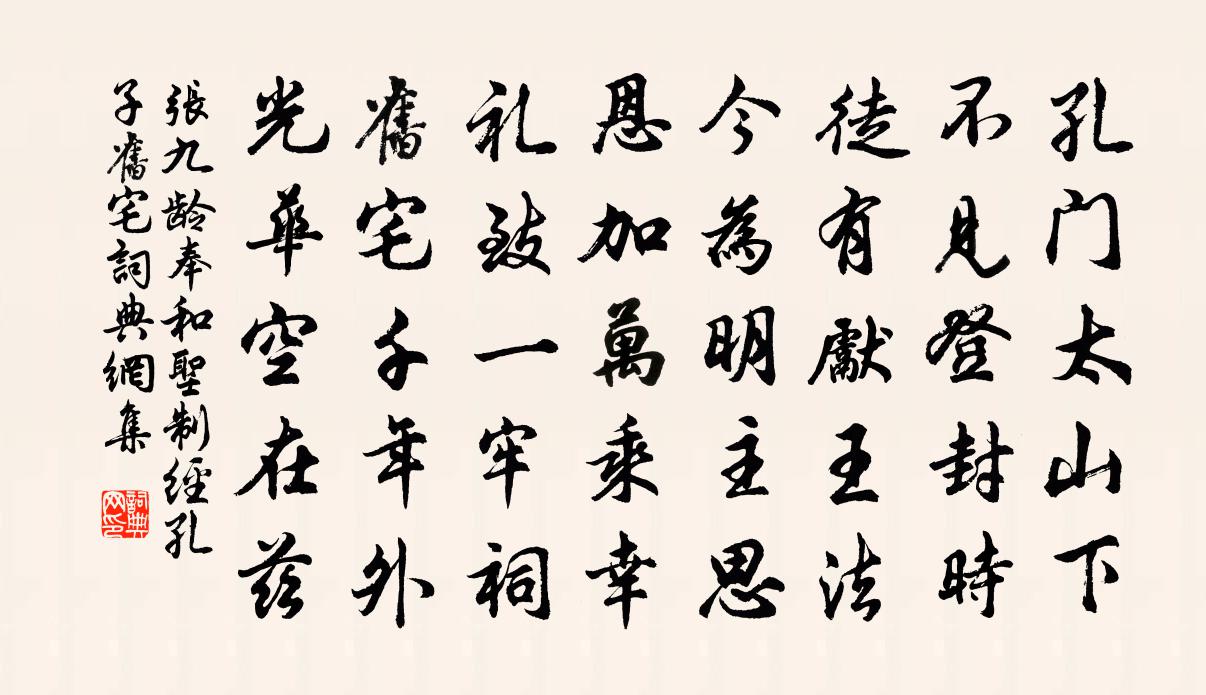 孔门太山下
不见登封時
徒有獻王法
今為明主思
恩加萬乘幸
礼致一牢祠
舊宅千年外
光華空在茲
張九龄奉和聖制經孔
子舊宅詞典網集
詞典
网印